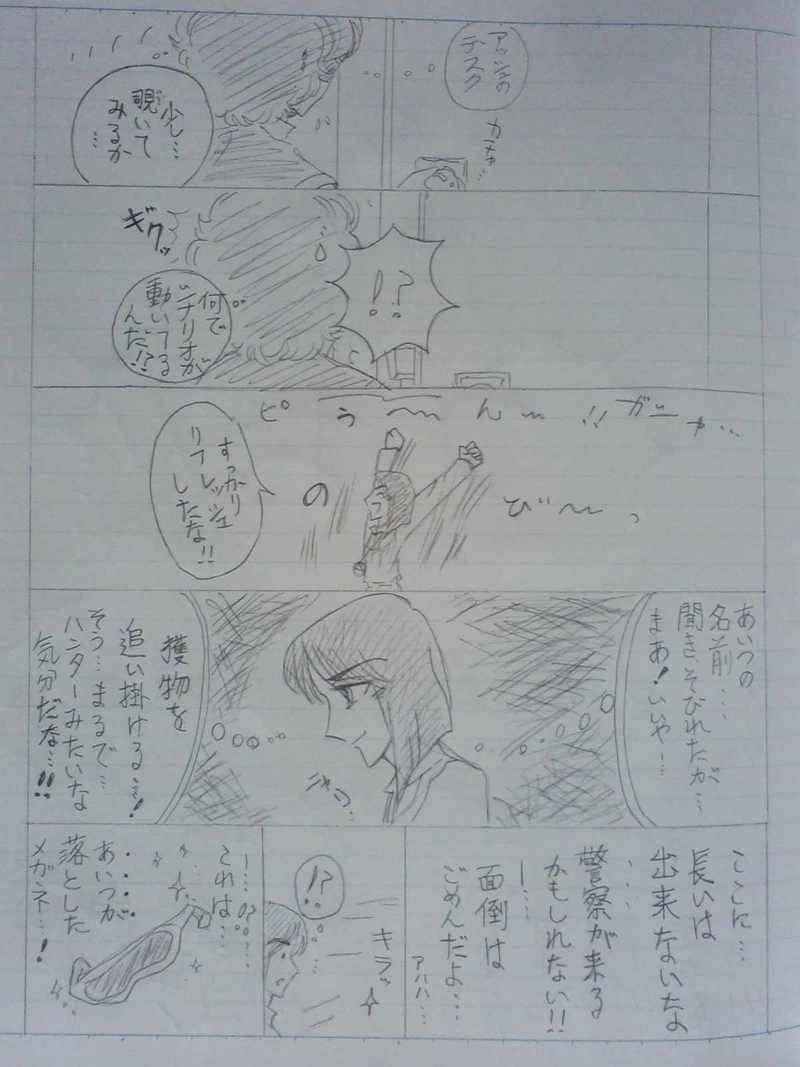 アッシュの
デスク
カチャ…
少し…
覗いて
みるか
…
!?
ギクッ
何で
シナリオが
動いてる
んだ!?
ガーッ…
ピ
う〜〜ん〜!!
び〜〜っ
の
すっかり
リフレッシュ
したな!!
あいつの
名前…
聞きそびれたが…
まあ!いいや…
獲物を
追い掛ける…!
そう…まるで…
ハンターみたいな
気分だな…!!
ここに…
長いは
出来ないな
…
警察が来る
かもしれない!!
ー…
面倒は
ごめんだよ…
アハハ…
キラッ
!?
ー…!?…
これは…
・・・・
あいつが
落とした
メガネ…!